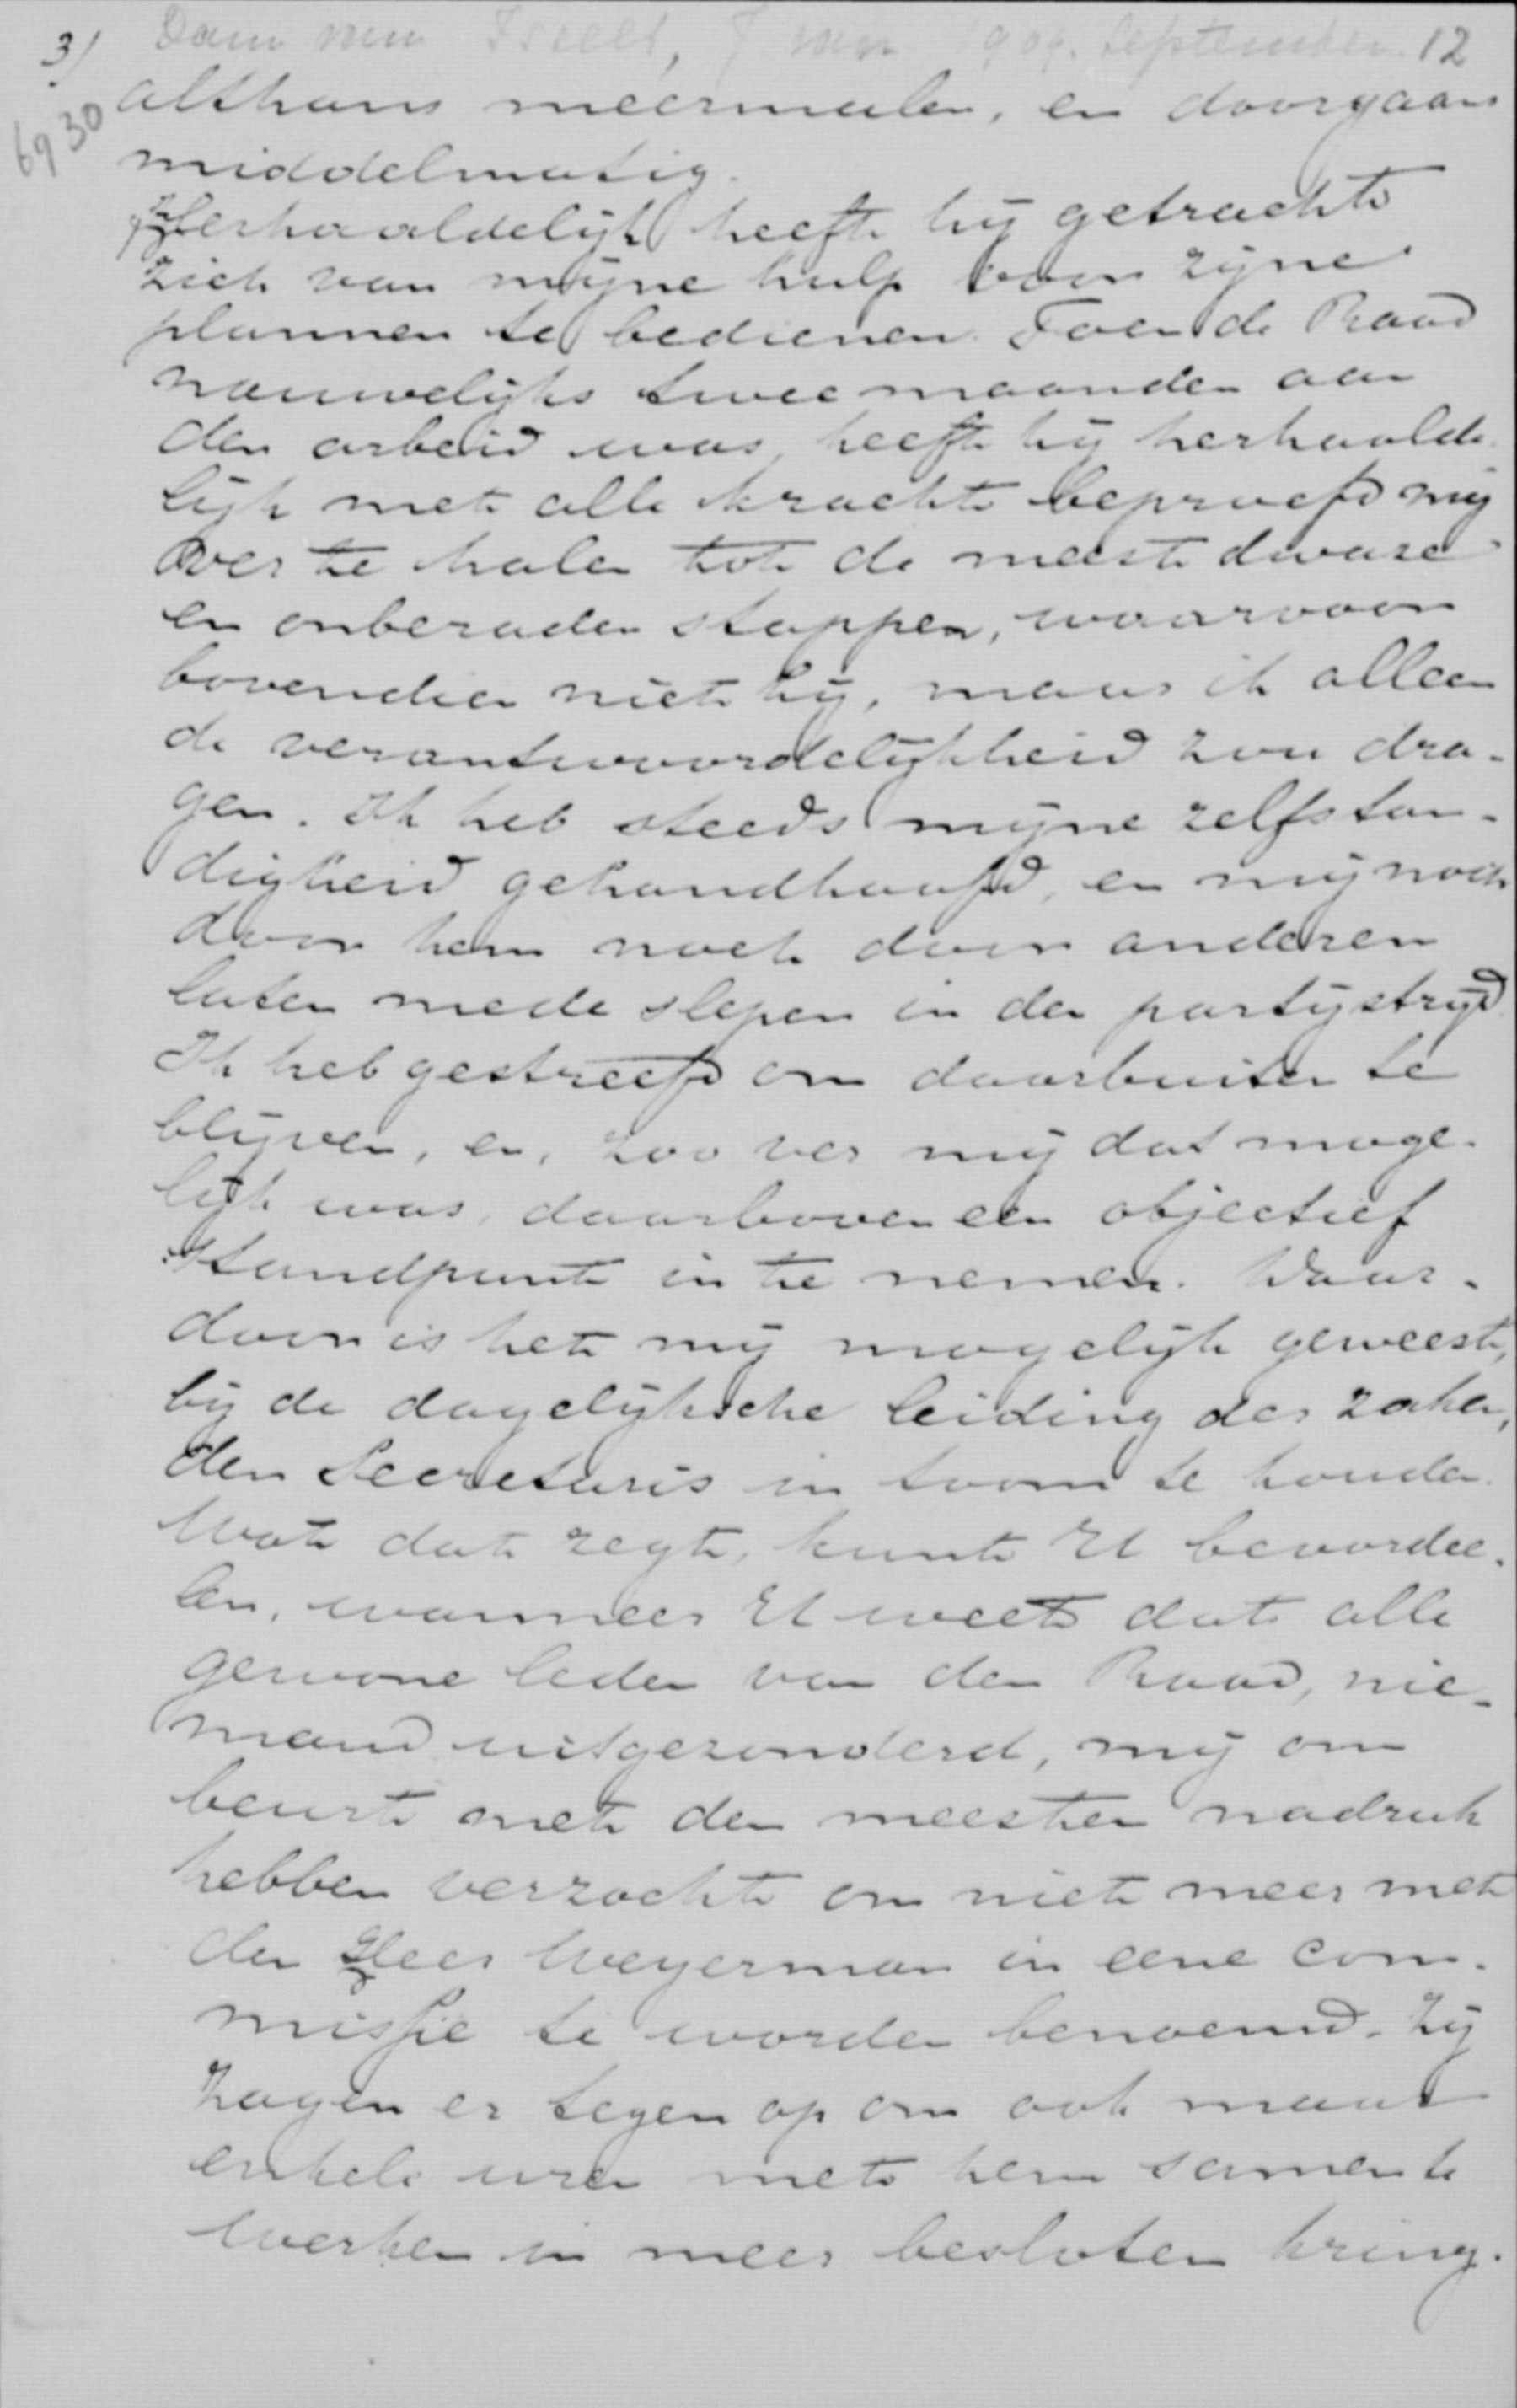 3/ September 12
6930
althans meermalen, en doorgaans
middelmatig.
Herhaaldelijk heeft hij getracht
zich van mijne hulp voor zijne
plannen te bedienen. Toen de Raad
nauwelijks twee maanden aan
den arbeid was, heeft hij herhaalde
lijk met alle kracht beproefd mij
over te halen tot de meest dwaze
en onberaden stappen, waarvoor
bovendien niet hij, maar ik alleen
de verantwoordelijkheid zou dra-
gen. Ik heb steeds mijne zelfstan-
digheid gehandhaafd, en mij noch
door hem noch door anderen
laten mede slepen in den partijstrijd.
Ik heb gestreefd om daarbuiten te
blijven, en, zoo ver mij dat moge-
lijk was, daarboven een objectief
standpunt in te nemen. Daar-
door is het mij mogelijk geweest,
bij de dagelijksche leiding der zaken,
den Secretaris in toom te houden.
Wat dat zegt, kunt U beoordee-
len, wanneer U weet dat alle
gewone leden van den Raad, nie-
mand uitgezonderd, mij om
beurt met den meesten nadruk
hebben verzocht om niet meer met
den Heer Weyerman in eene com-
missie te worden benoemd. Zij
zagen er tegen op om ook maar
enkele uren met hem samen te
werken in meer besloten kring.